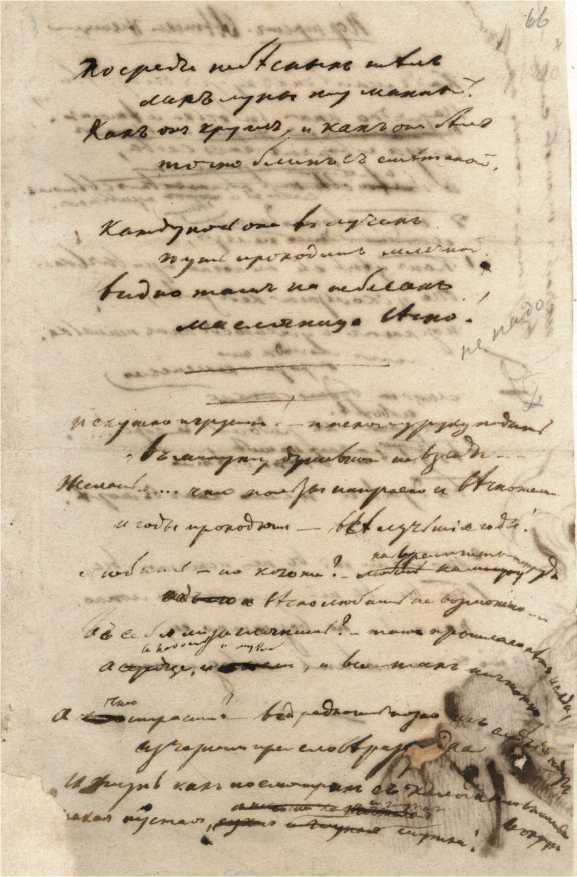 66
Посреди небесныхъ тѣлъ
Ликъ луны туманный:
Какъ онъ круглъ, и какъ онъ бѣлъ
точно блинъ съ сметаной,
Кажду ночь она въ лучахъ
путь проходитъ млечный
видно тамъ на небесахъ
масляница вѣчно!
не надо
и скучно и грустно. — и некому руку подать
въ минуту душевной невзгоды —
Желанья.... что пользы напрасно и вѣчно желать
и годы проходятъ — всѣ лучшіе годы!
Любить — но кого же? — на время не стоитъ труда
а вѣчно любить не возможно —
въ себя ли заглянешь? — тамъ прошлаго нѣтъ и слѣда,
а радость, и муки, и все такъ ничтожно
А что страсти? — вѣдь рано иль поздно ихъ недугъ
исчезнетъ при словѣ разсудка
И жизнь какъ посмотришь съ холоднымъ вниманьемъ вокругъ
такая пустая, и глупая шутка!